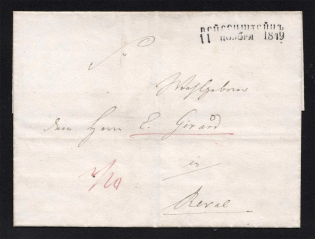 ВЕЙСЕНШТЕЙНЪ
11 НОЯБРЯ 1849
Wohlgeboren
dem Herrn C. Girard
in
Reval